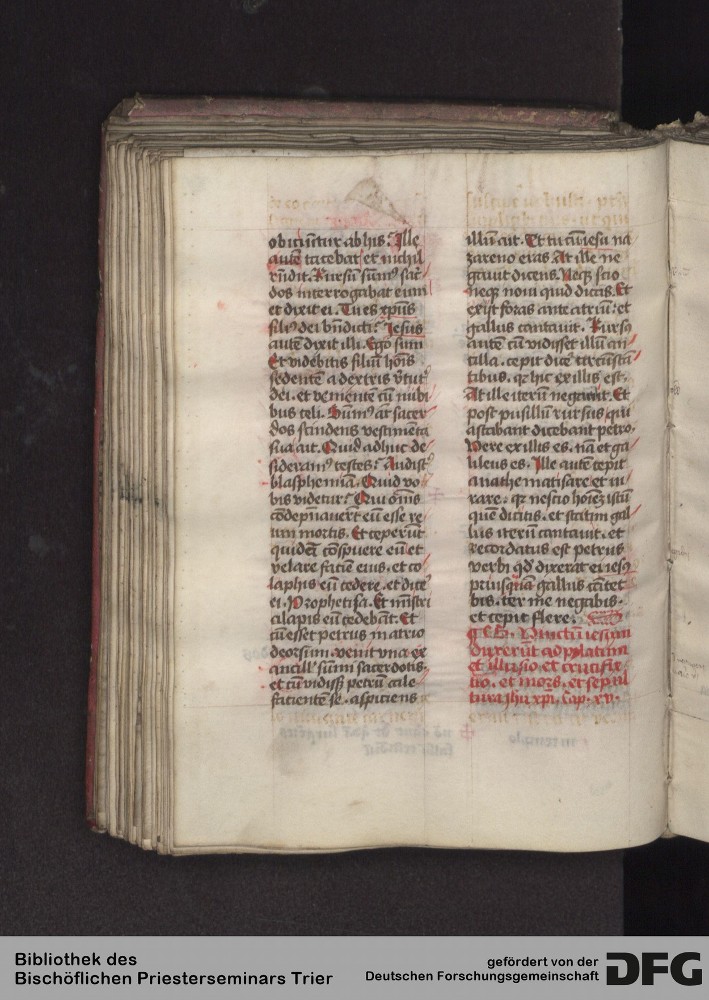 obiciūtur ab his? Ille
autē tacebat et nichil
rn̄dit. Rursū sūm⁹ sac̄
dos interrogabat eum
et dixit ei. Tu es xp̄us
fili⁹ dei bn̄dicti? Jesus
autē dixit illi. Ego sum
Et videbitis filiū hoīs
sedentē a dextris v̄tut
dei. et venientē cū nubi
bus celi. Sūm⁹ aūt sacer
dos scindens vestimēta
sua ait. Quid adhuc de
sideram⁹ testes? Audist
blasphemiā. Quid vo
bis videtur? Qui om̄s
cōdēpnauerūt eū esse re
um mortis. Et ceperūt
quidā cōspuere eū et
velare faciē eius. et co
laphis eū cedere. et dice
ei. Prophetisa. Et mīstri
alapis eū cedebāt. Et
cū esset petrus in atrio
deorsum. venit vna ex
ancill sūmi sacerdotis.
et cū vidiss petrū cale
facientē se. aspiciens
illū ait. Et tu cū iesu na
zareno eras. At ille ne
gauit dicens. Neq scio
neq noui quid dicas. Et
exijt foras ante atriū. et
gallus cantauit. Rurs⁹
autē cū vidisset illū an
cilla. cepit dice circūstā
tibus. qr hic ex illis est.
At ille iterū negauit. Et
post pusillū rursus qui
astabant dicebant petro.
Vere ex illis es. nā et ga
lileus es. Ille autē cepit
anathematisare et iu
rare. qr nescio hoīez istū
quē dicitis. et statim gal
lus iterū cantauit. et
recordatus est petrus
verbi qd dixerat ei iesꝰ
priusquam gallus cātet
bis. ter me negabis.
et cepit flere.
Vinctum iesum
duxerūt ad pylatum
et illusio et crucifix
io. et mors. et sepul
tura jhu xpi. Cap. xv.
Bibliothek des
Bischöflichen Priesterseminars Trier
gefördert von der
Deutschen Forschungsgemeinschaft
DFG